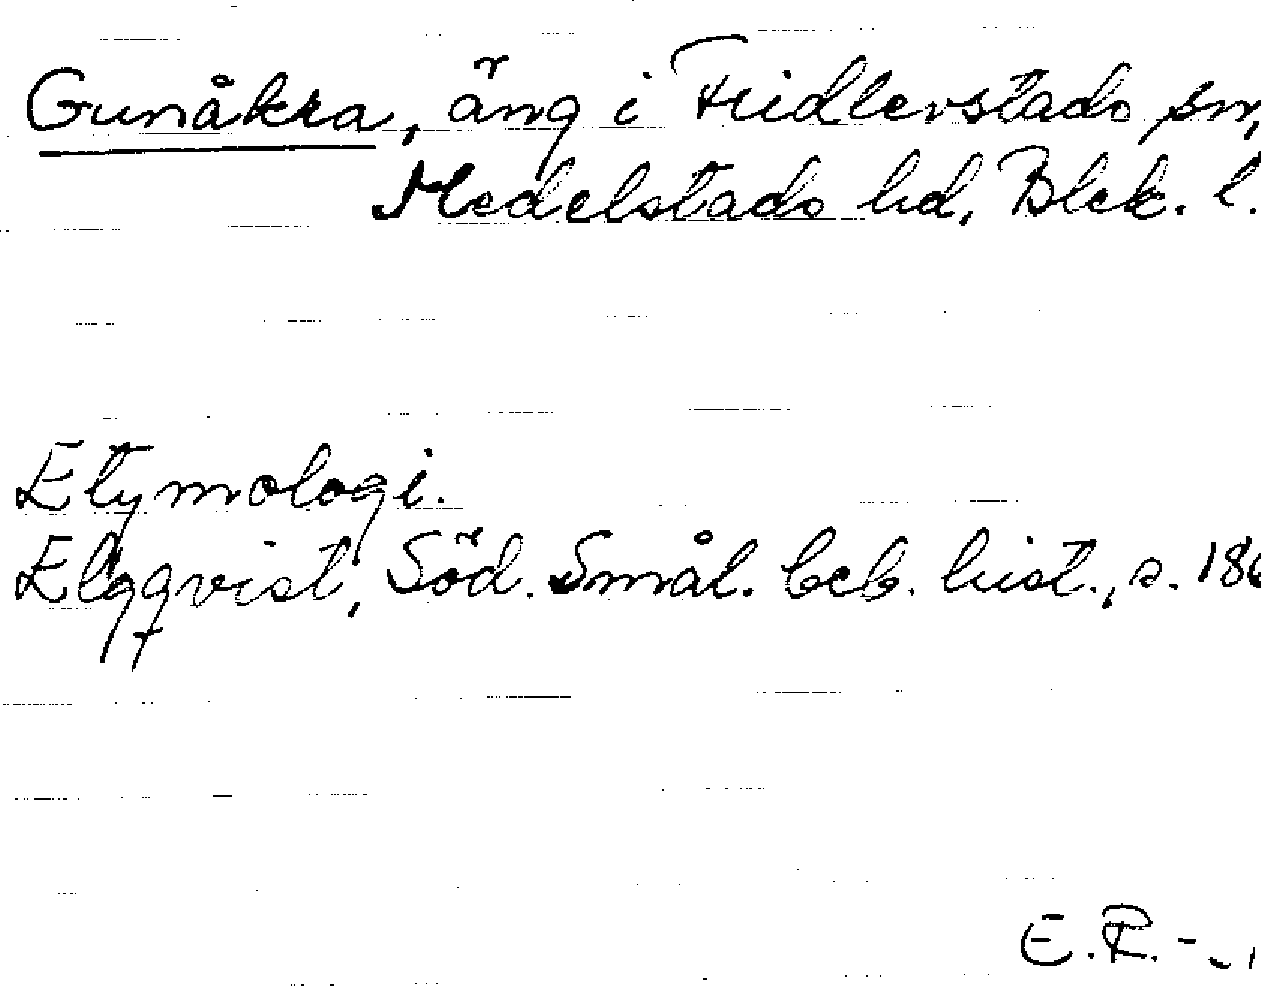 Gunåkra, äng i Fridlevstads sn,
Medelstads hd, Blek. l.
Etymologi.
Elqqvist, Söd. Smål. beb. hist., s. 186
E.R.-